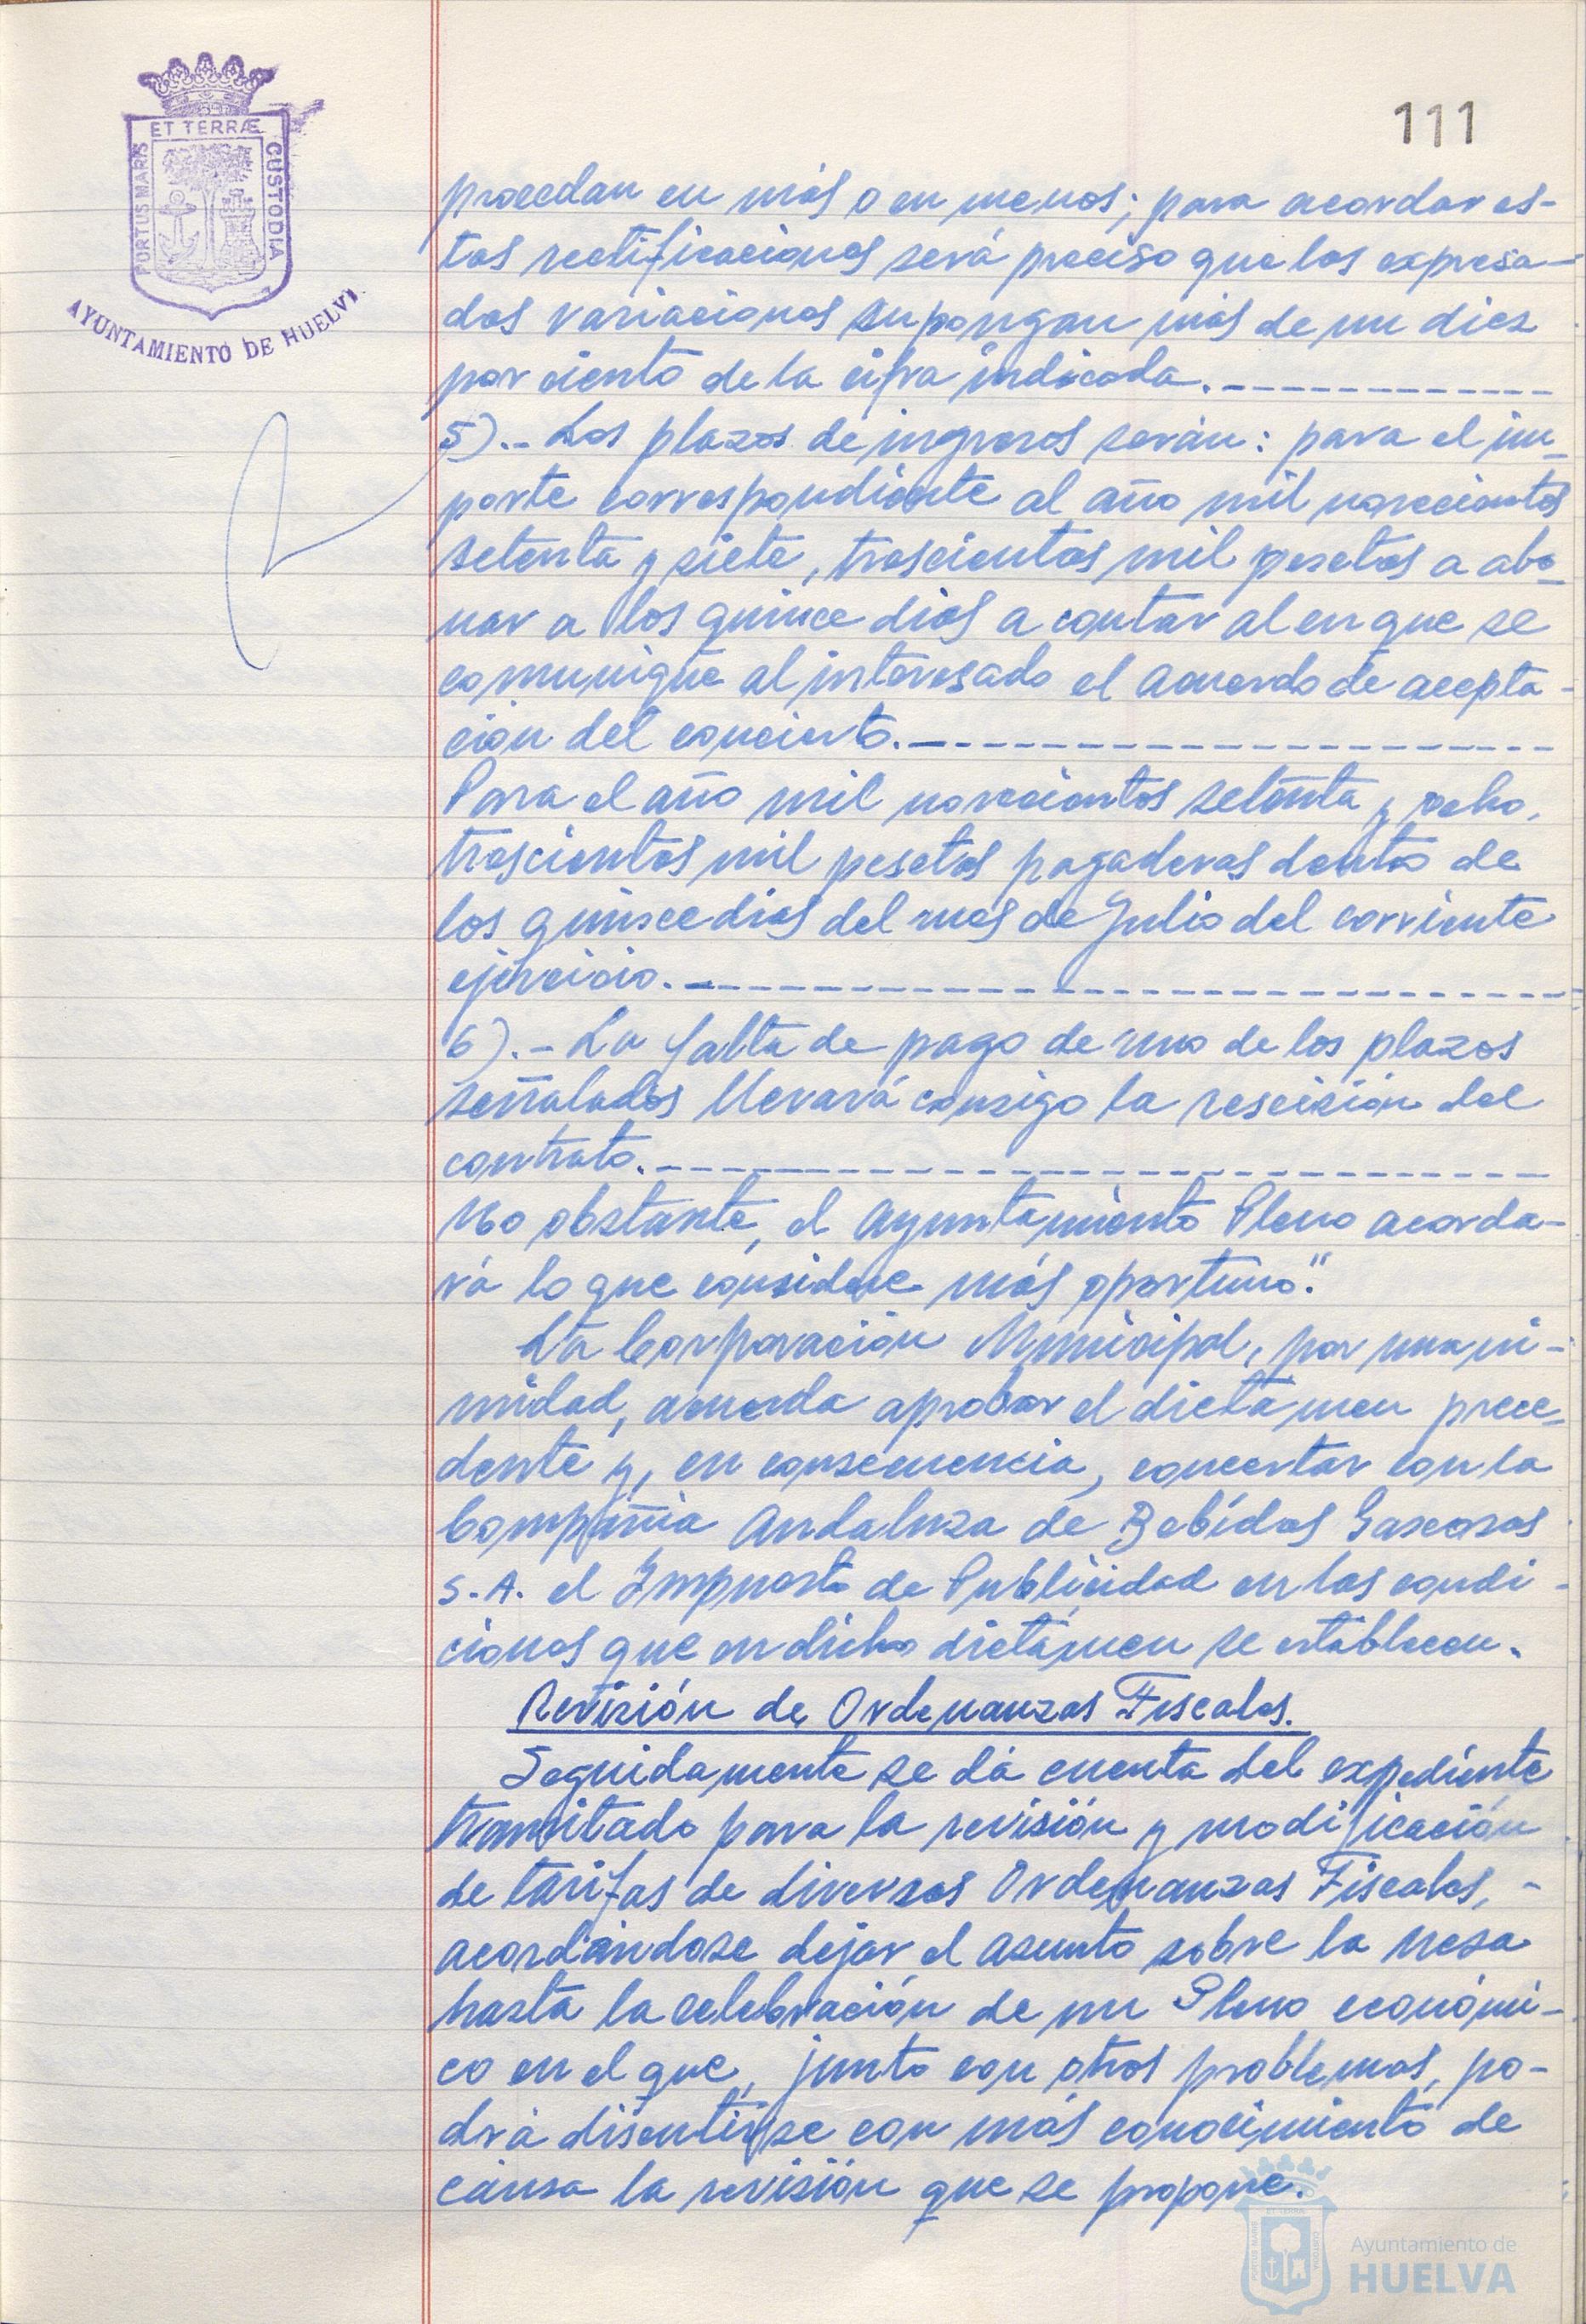 111
ET TERRÆ
PORTUS MARIS
CUSTODIA
AYUNTAMIENTO DE HUELVA
procedan en más o en menos; para acordar es-
tas rectificaciones será preciso que las expresa-
das variaciones supongan más de un diez
por ciento de la cifra indicada.
5).- Los plazos de ingresos serán: para el im-
porte correspondiente al año mil novecientos
setenta y siete, trescientas mil pesetas a abo-
nar a los quince dias a contar al en que se
comunique al interesado el acuerdo de acepta-
ción del concierto.
Para el año mil novecientos setenta y ocho,
trescientas mil pesetas pagaderas dentro de
los quince dias del mes de Julio del corriente
ejercicio.
6).- La falta de pago de uno de los plazos
señalados llevará consigo la rescisión del
contrato.
No obstante, el Ayuntamiento Pleno acorda-
rá lo que considere más oportuno."
La Corporación Municipal, por unani-
midad, acuerda aprobar el dictamen prece-
dente y, en consecuencia, concertar con la
Compañia Andaluza de Bebidas Gaseosas
S.A. el Impuesto de Publicidad en las condi-
ciones que en dicho dictámen se establecen.
Revisión de Ordenanzas Fiscales.
Seguidamente se dá cuenta del expediente
tramitado para la revisión y modificación
de tarifas de diversas Ordenanzas Fiscales, -
acordándose dejar el asunto sobre la mesa
hasta la celebración de un Pleno económi-
co en el que, junto con otros problemas, po-
drá discutirse con más conocimiento de
causa la revisión que se propone.
Ayuntamiento de
HUELVA